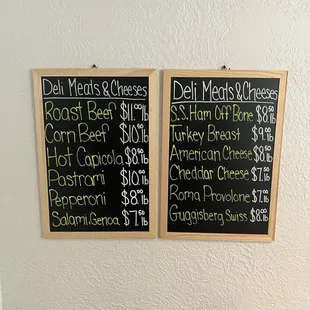 Deli Meats & Cheeses
Roast Beef $11.00 lb
Corn Beef $10.50 lb
Hot Capicola $8.50 lb
Pastrami $10.00 lb
Pepperoni $8.00 lb
Salami, Genoa $7.50 lb
Deli Meats & Cheeses
S.S. Ham Off Bone $8.50 lb
Turkey Breast $9.00 lb
American Cheese $8.50 lb
Cheddar Cheese $7.50 lb
Roma Provolone $7.00 lb
Guggisberg Swiss $8.00 lb